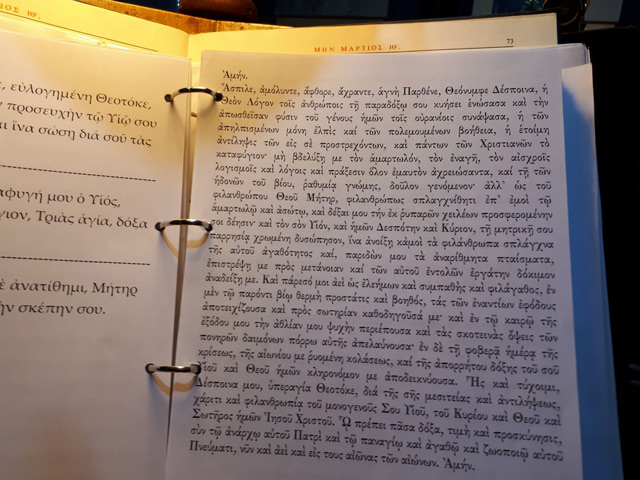 ΙΟΣ ΙΘ΄.
ς, εὐλογημένη Θεοτόκε,
ν προσευχὴν τῷ Υἱῷ σου
αι ἵνα σώσῃ διὰ σοῦ τὰς
αφυγή μου ὁ Υἱός,
γιον, Τριὰς ἁγία, δόξα
ὲ ἀνατίθημι, Μῆτηρ
ὴν σκέπην σου.
ΜΗΝ ΜΑΡΤΙΟΣ ΙΘ΄.
73
Ἀμήν.
Ἄσπιλε, ἀμόλυντε, ἄφθορε, ἄχραντε, ἁγνὴ Παρθένε, Θεόνυμφε Δέσποινα, ἡ
Θεὸν Λόγον τοῖς ἀνθρώποις τῇ παραδόξῳ σου κυήσει ἑνώσασα καὶ τὴν
ἀπωσθεῖσαν φύσιν τοῦ γένους ἡμῶν τοῖς οὐρανίοις συνάψασα, ἡ τῶν
ἀπηλπισμένων μόνη ἐλπὶς καὶ τῶν πολεμουμένων βοήθεια, ἡ ἑτοίμη
ἀντίληψις τῶν εἰς σὲ προστρεχόντων, καὶ πάντων τῶν Χριστιανῶν τὸ
καταφύγιον· μὴ βδελύξῃ με τὸν ἁμαρτωλόν, τὸν ἐναγῆ, τὸν αἰσχροῖς
λογισμοῖς καὶ λόγοις καὶ πράξεσιν ὅλον ἐμαυτὸν ἀχρειώσαντα, καί τῇ τῶν
ἡδονῶν τοῦ βίου, ῥαθυμίᾳ γνώμης, δοῦλον γενόμενον· ἀλλ᾿ ὡς τοῦ
φιλανθρώπου Θεοῦ Μήτηρ, φιλανθρώπως σπλαγχνίσθητι ἐπ᾿ ἐμοὶ τῷ
ἁμαρτωλῷ καὶ ἀσώτῳ, καὶ δέξαι μου τὴν ἐκ ῥυπαρῶν χειλέων προσφερομένην
σοι δέησιν· καὶ τὸν σὸν Υἱόν, καὶ ἡμῶν Δεσπότην καὶ Κύριον, τῇ μητρικῇ σου
παρρησίᾳ χρωμένη δυσώπησον, ἵνα ἀνοίξῃ κἀμοὶ τὰ φιλάνθρωπα σπλάγχνα
τῆς αὐτοῦ ἀγαθότητος καί, παριδὼν μου τὰ ἀναρίθμητα πταίσματα,
ἐπιστρέψῃ με πρὸς μετάνοιαν καὶ τῶν αὐτοῦ ἐντολῶν ἐργάτην δόκιμον
ἀναδείξῃ με. Καὶ πάρεσό μοι ἀεὶ ὡς ἐλεήμων καὶ συμπαθὴς καὶ φιλάγαθος, ἐν
μὲν τῷ παρόντι βίῳ θερμὴ προστάτις καὶ βοηθός, τάς τῶν ἐναντίων ἐφόδους
ἀποτειχίζουσα καὶ πρὸς σωτηρίαν καθοδηγοῦσά με· καὶ ἐν τῷ καιρῷ τῆς
ἐξόδου μου τὴν ἀθλίαν μου ψυχὴν περιέπουσα καὶ τὰς σκοτεινὰς ὄψεις τῶν
πονηρῶν δαιμόνων πόρρω αὐτῆς ἀπελαύνουσα· ἐν δὲ τῇ φοβερᾷ ἡμέρᾳ τῆς
κρίσεως, τῆς αἰωνίου με ῥυομένη κολάσεως, καὶ τῆς ἀπορρήτου δόξης τοῦ σοῦ
Υἱοῦ καὶ Θεοῦ ἡμῶν κληρονόμον με ἀποδεικνύουσα. Ἧς καὶ τύχοιμι,
Δέσποινα μου, ὑπεραγία Θεοτόκε, διὰ τῆς σῆς μεσιτείας καὶ ἀντιλήψεως,
χάριτι καὶ φιλανθρωπίᾳ τοῦ μονογενοῦς Σου Υἱοῦ, τοῦ Κυρίου καὶ Θεοῦ καὶ
Σωτῆρος ἡμῶν Ἰησοῦ Χριστοῦ. ᾯ πρέπει πᾶσα δόξα, τιμὴ καὶ προσκύνησις,
σὺν τῷ ἀνάρχῳ αὐτοῦ Πατρὶ καὶ τῷ παναγίῳ καὶ ἀγαθῷ καὶ ζωοποιῷ αὐτοῦ
Πνεύματι, νῦν καὶ ἀεὶ καὶ εἰς τους αἰῶνας τῶν αἰώνων. Ἀμήν.